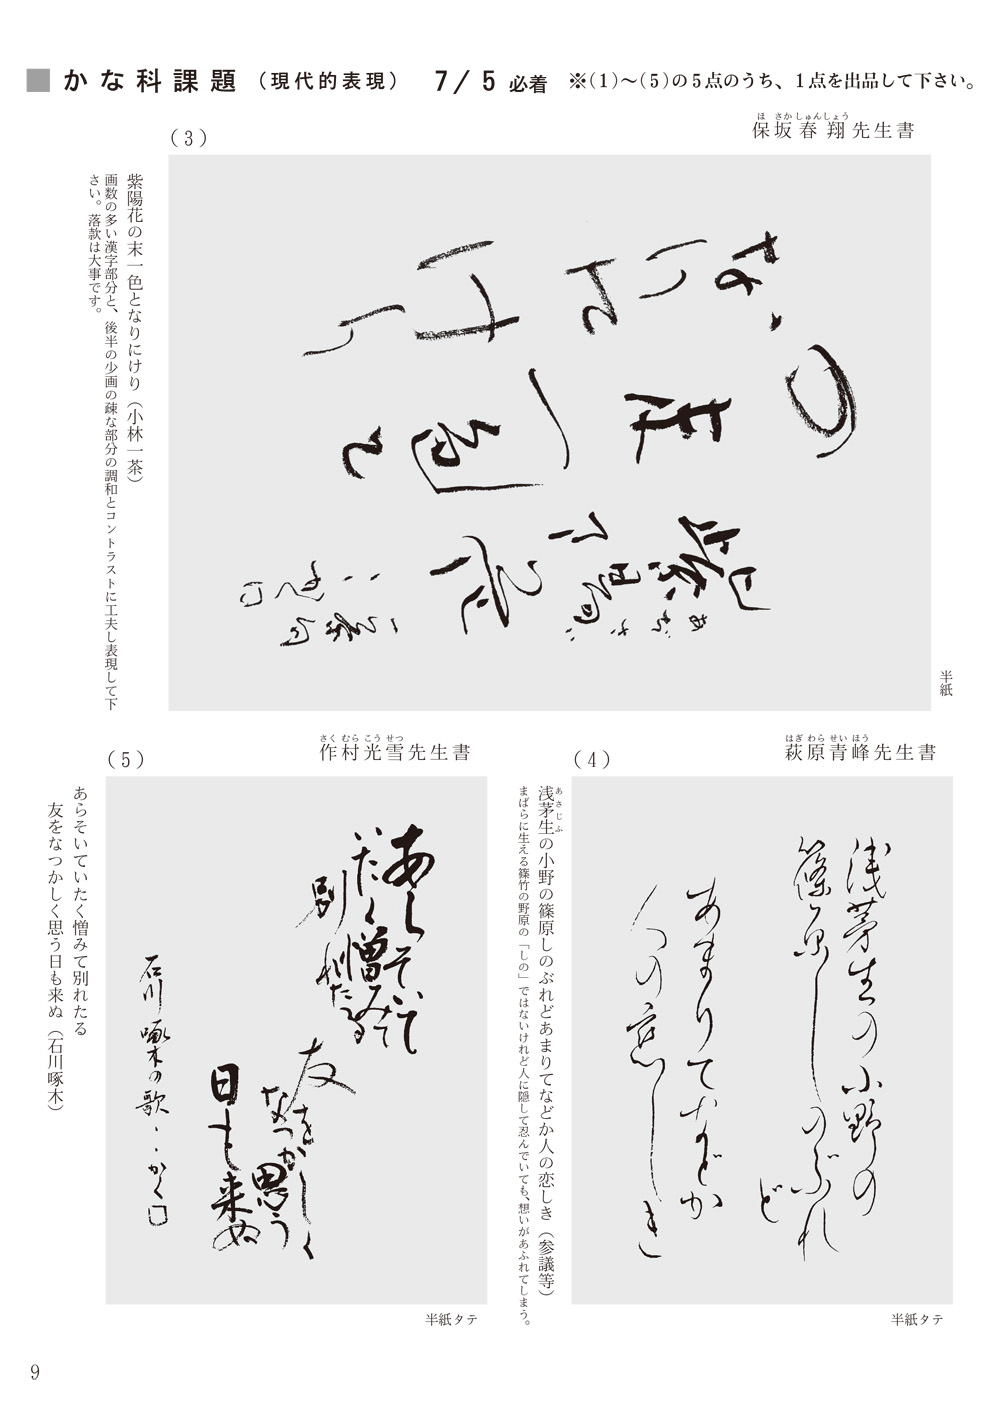 かな科課題（現代的表現） 7/5必着 ※(1)〜(5)の5点のうち、1点を出品して下さい。
(3)
ほ さか しゅんしょう
保坂春翔先生書
紫陽花の末一色となりにけり（小林一茶）
画数の多い漢字部分と、後半の少画の疎な部分の調和とコントラストに工夫し表現して下
さい。落款は大事です。
半紙
(4)
はぎ わら せい ほう
萩原青峰先生書
浅茅生の小野の
篠原しのぶれ
ど
あまりてなどか
人の恋しき
あさじふ
浅茅生の小野の篠原しのぶれどあまりてなどか人の恋しき（参議等）
まばらに生える篠竹の野原の「しの」ではないけれど人に隠して忍んでいても、想いがあふれてしまう。
半紙タテ
(5)
さく むら こう せつ
作村光雪先生書
あらそいて
いたく憎みて
別れたる
友を
なつかしく
思う
日も来ぬ
石川啄木の歌・・かく
あらそいていたく憎みて別れたる
友をなつかしく思う日も来ぬ（石川啄木）
半紙タテ
9